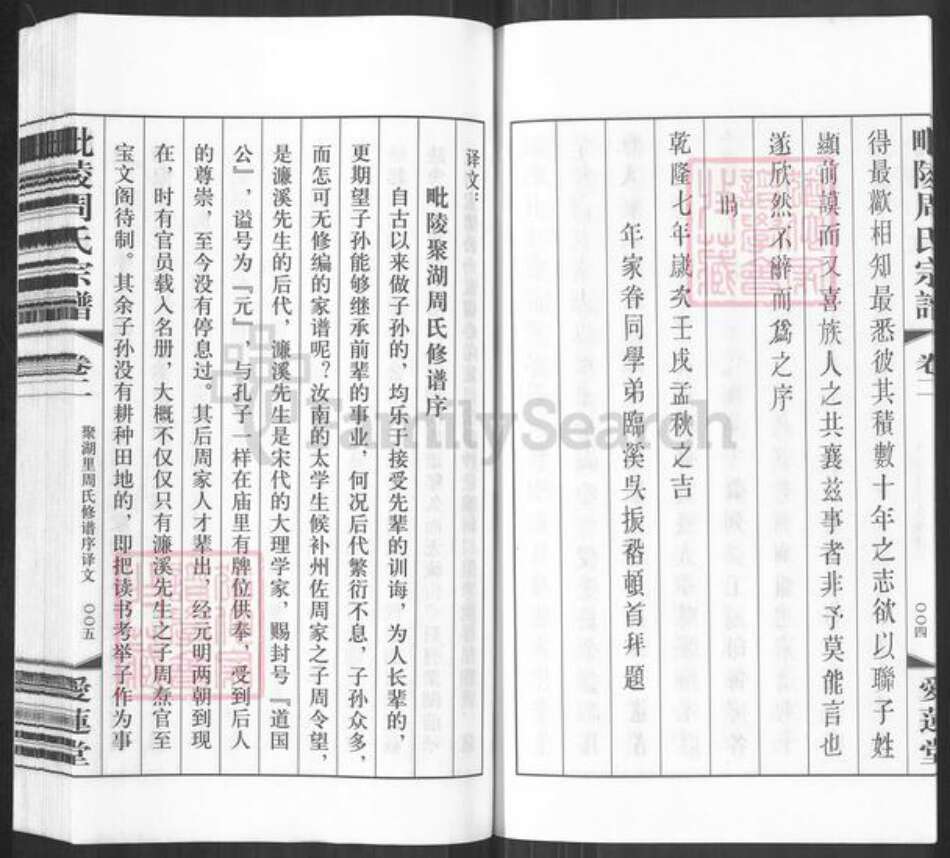 毗陵周氏宗譜
卷二
〇〇四
愛蓮堂
得最歡相知最悉彼其積數十年之志欲以聯子姓
顯前謨而又喜族人之共襄茲事者非予莫能言也
遂欣然不辭而爲之序
時
乾隆七年歲次壬戌孟秋之吉
年家眷同學弟臨溪吳振 頓首拜題
译文：
毗陵聚湖周氏修谱序
自古以来做子孙的，均乐于接受先辈的训诲，为人长辈的，
更期望子孙能够继承前辈的事业，何况后代繁衍不息，子孙众多，
而怎可无修编的家谱呢？汝南的太学生候补州佐周家之子周令望，
是濂溪先生的后代，濂溪先生是宋代的大理学家，赐封号『道国
公』，谥号为『元』，与孔子一样在庙里有牌位供奉，受到后人
的尊崇，至今没有停息过。其后周家人才辈出，经元明两朝到现
在，时有官员载入名册，大概不仅仅只有濂溪先生之子周焘官至
宝文阁待制。其余子孙没有耕种田地的，即把读书考举子作为事
毗陵周氏宗譜
卷二
聚湖里周氏修谱序译文
〇〇五
愛蓮堂
FamilySearch